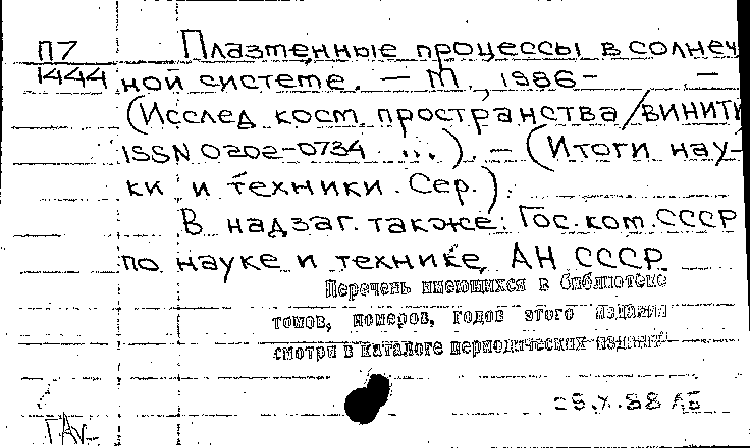 П7 Плазменные процессы в солнеч
1444 ной системе. — М., 1986- —
(Исслед косм пространства/ВИНИТИ
ISSN 0202-0734 ...). — (Итоги нау-
ки и техники. Сер.).
В надзаг. также: Гос. ком. СССР
по науке и технике, АН СССР
Перечень имеющихся в библиотеке
томов, номеров, годов этого издания
смотри в каталоге периодических изданий
.X.88